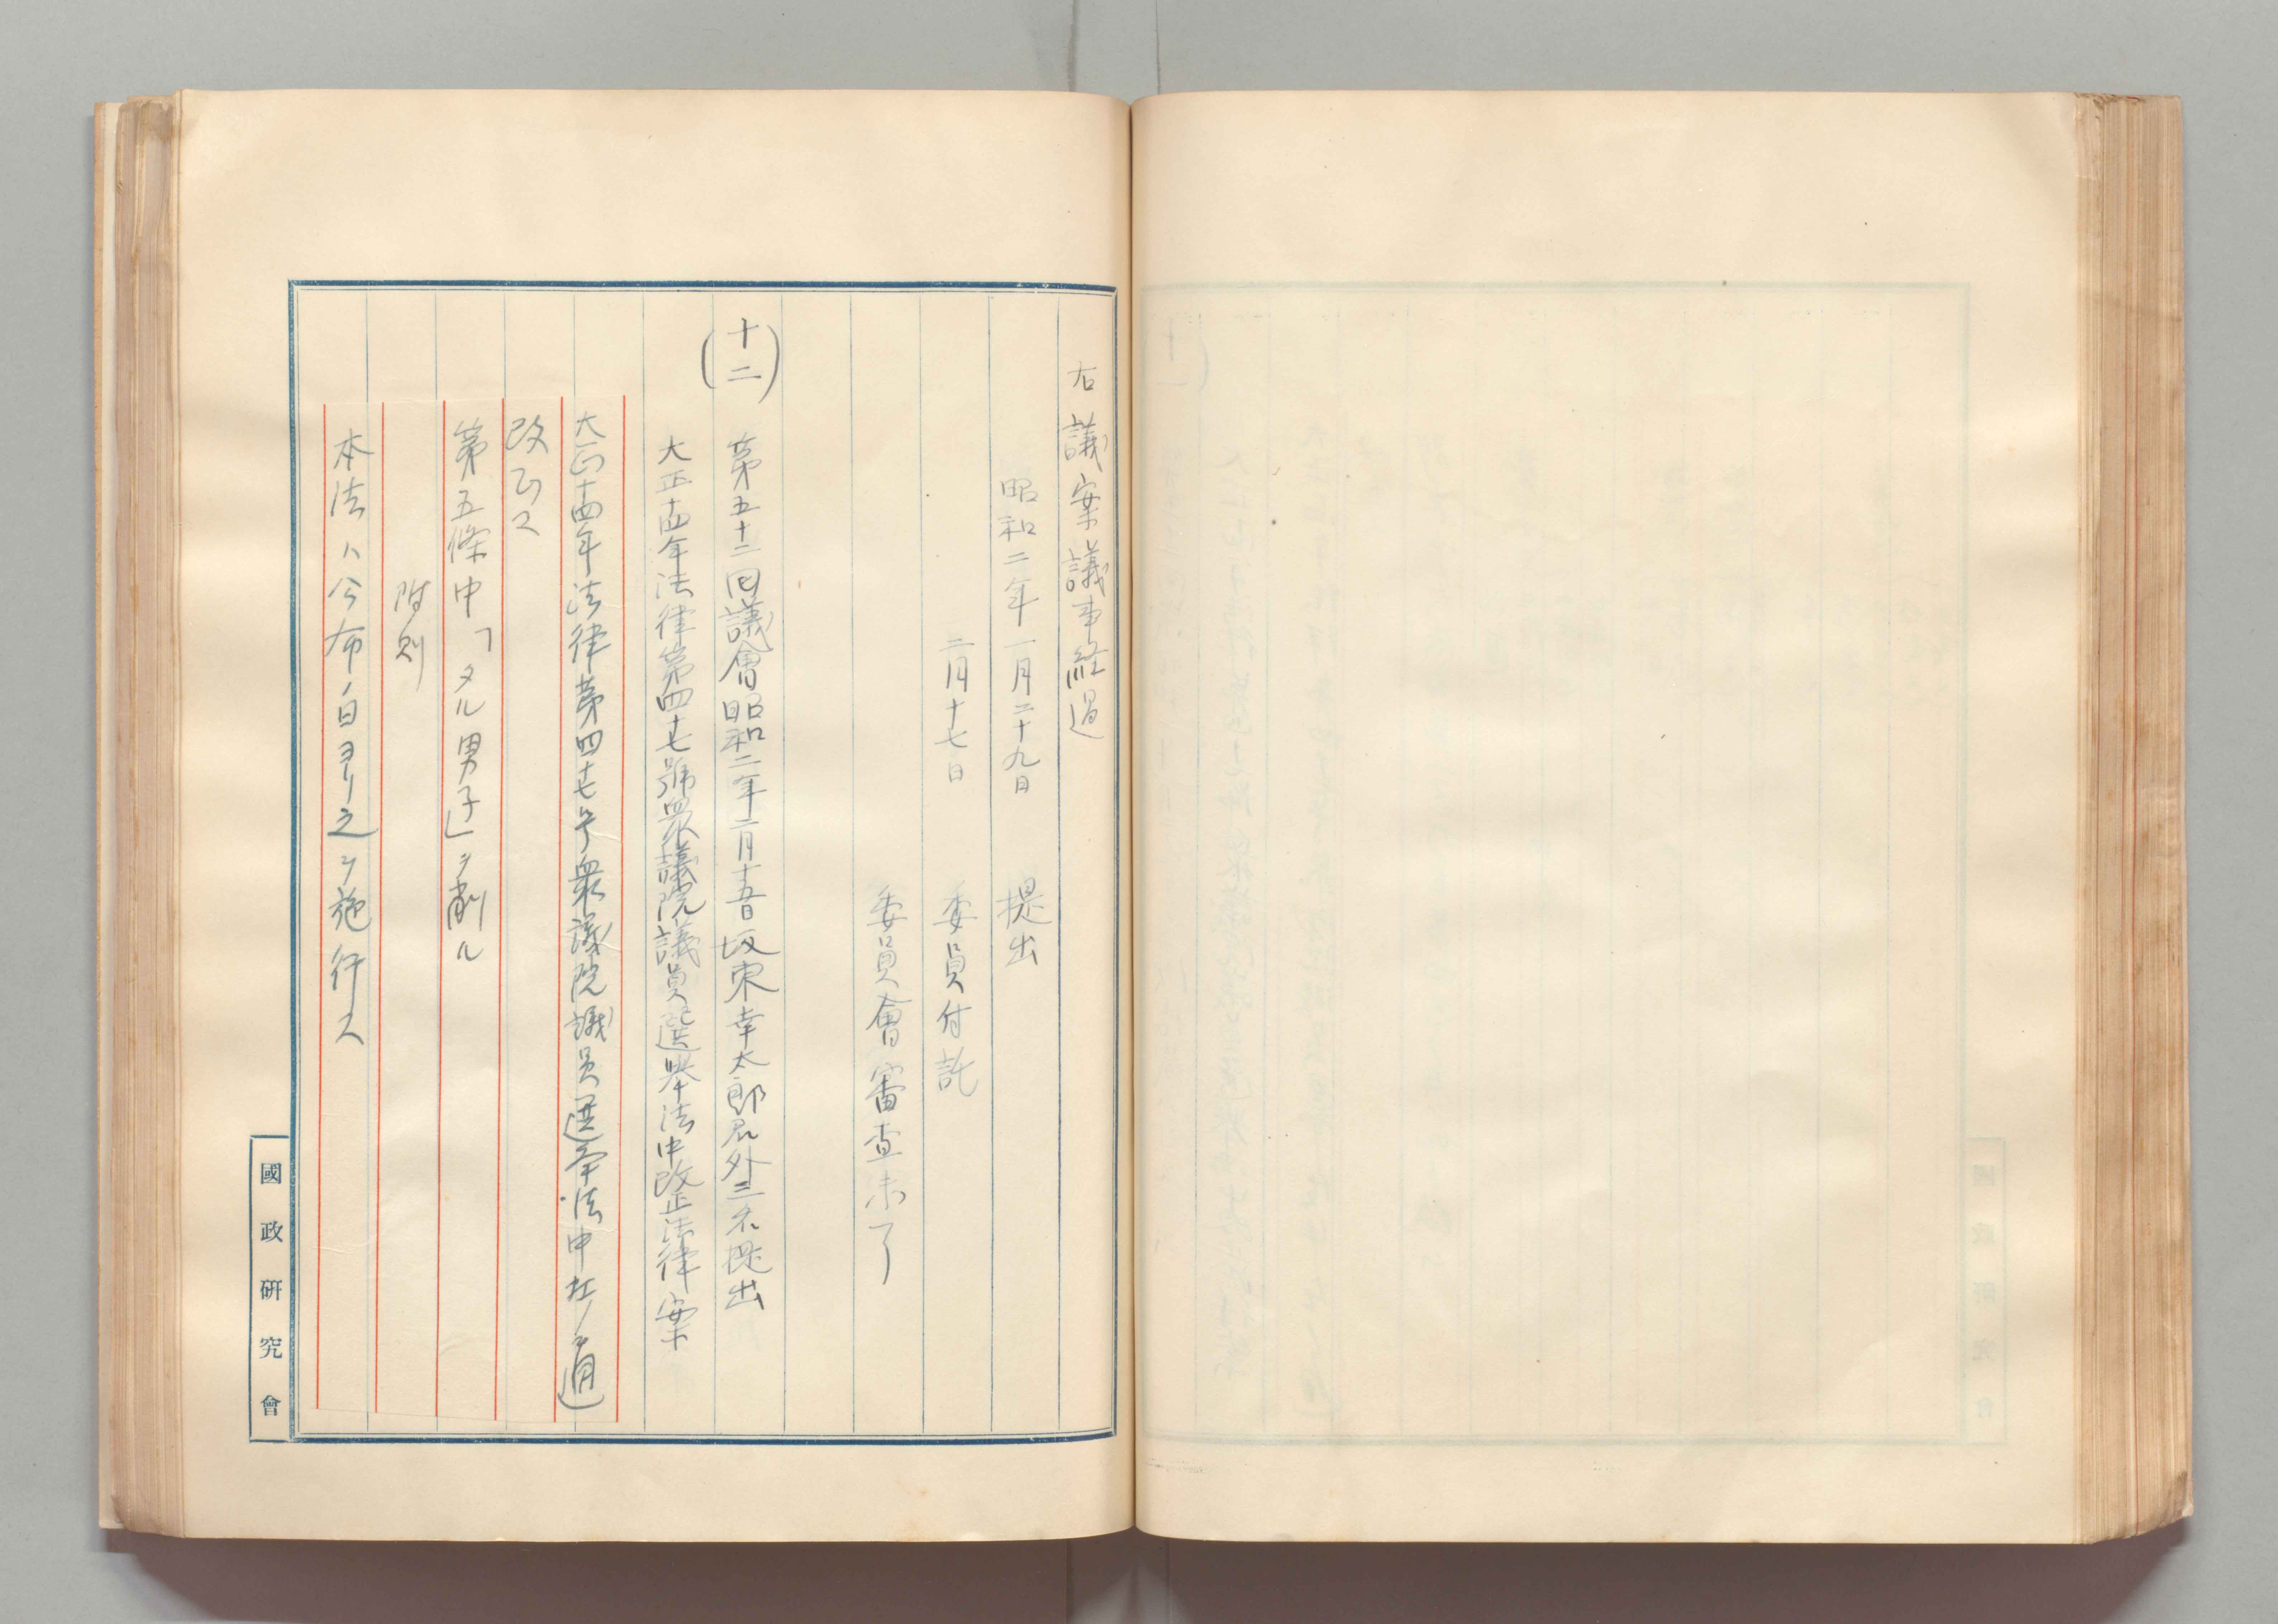 右議案議事経過
昭和二年一月二十九日 提出
二月十七日 委員付託
委員會審査未了
(十二) 第五十二回議會昭和二年二月十五日坂東幸太郎君外三名提出
大正十四年法律第四十七號衆議院議員選挙法中改正法律案
大正十四年法律第四十七号衆議院議員選挙法中左ノ通
改正ス
第五條中「タル男子」ヲ削ル
附則
本法ハ公布ノ日ヨリ之ヲ施行ス
國政研究會